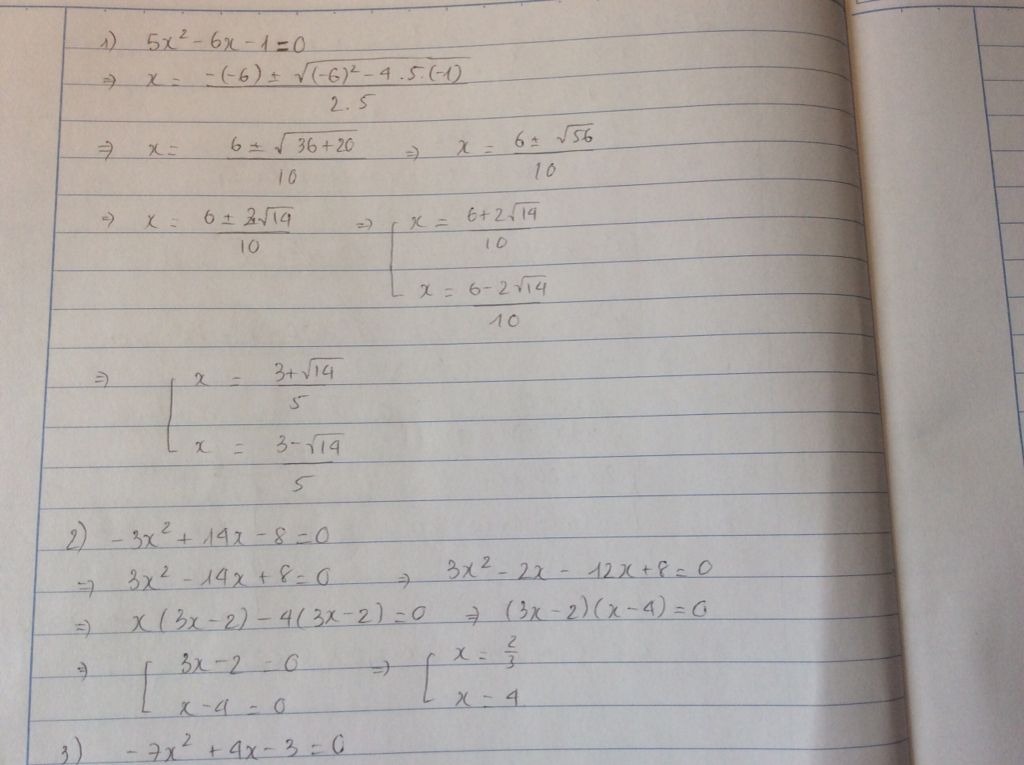 1) 5x² - 6x - 1 = 0
⇒ x = (-(-6) ± √((-6)² - 4 . 5 . (-1))) / (2 . 5)
⇒ x = (6 ± √(36+20)) / 10 ⇒ x = (6 ± √56) / 10
⇒ x = (6 ± 2√14) / 10 ⇒ [ x = (6+2√14) / 10
x = (6-2√14) / 10
⇒ [ x = (3+√14) / 5
x = (3-√14) / 5
2) -3x² + 14x - 8 = 0
⇒ 3x² - 14x + 8 = 0 ⇒ 3x² - 2x - 12x + 8 = 0
⇒ x(3x-2) - 4(3x-2) = 0 ⇒ (3x-2)(x-4) = 0
⇒ [ 3x-2 = 0 ⇒ [ x = 2/3
x-4 = 0 x = 4
3) -7x² + 4x - 3 = 0